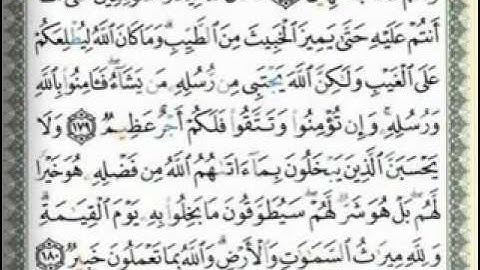 أَنتُمْ عَلَيْهِ حَتَّىٰ يَمِيزَ الْخَبِيثَ مِنَ الطَّيِّبِ ۗ وَمَا كَانَ اللَّهُ لِيُطْلِعَكُمْ
عَلَى الْغَيْبِ وَلَٰكِنَّ اللَّهَ يَجْتَبِي مِن رُّسُلِهِ مَن يَشَاءُ ۖ فَآمِنُوا بِاللَّهِ
وَرُسُلِهِ ۚ وَإِن تُؤْمِنُوا وَتَتَّقُوا فَلَكُمْ أَجْرٌ عَظِيمٌ ١٧٩ وَلَا
يَحْسَبَنَّ الَّذِينَ يَبْخَلُونَ بِمَا آتَاهُمُ اللَّهُ مِن فَضْلِهِ هُوَ خَيْرًا
لَّهُم ۖ بَلْ هُوَ شَرٌّ لَّهُمْ ۖ سَيُطَوَّقُونَ مَا بَخِلُوا بِهِ يَوْمَ الْقِيَامَةِ ۗ
وَلِلَّهِ مِيرَاثُ السَّمَاوَاتِ وَالْأَرْضِ ۗ وَاللَّهُ بِمَا تَعْمَلُونَ خَبِيرٌ ١٨٠